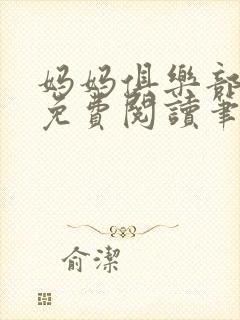 媽媽俱樂部
免費閱讀筆
俞潔